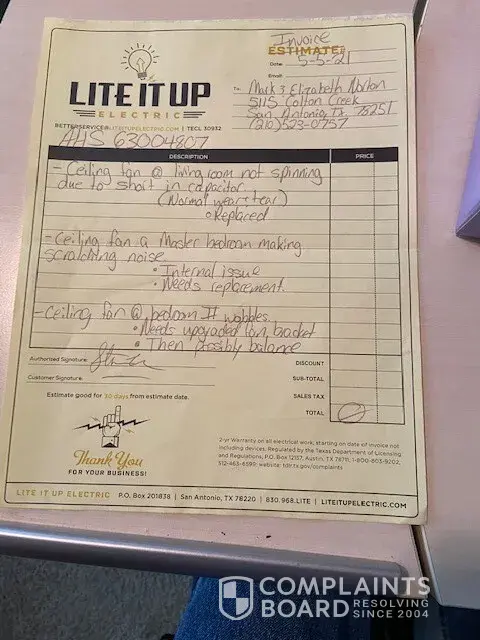 Invoice
ESTIMATE
Date: 5-5-21
Email:
To: Mark & Elizabeth Norton
5115 Colton Creek
San Antonio, TX 78251
(210) 523-0757
LITE IT UP
ELECTRIC
BETTERSERVICE@LITEITUPELECTRIC.COM | TECL 30932
AHS 63004807
DESCRIPTION
PRICE
- Ceiling fan @ living room not spinning
due to short in capacitor
(Normal wear & tear)
• Replaced
- Ceiling fan @ Master bedroom making
scratching noise
• Internal issue
• Needs replacement.
- Ceiling fan @ bedroom II wobbles
• Needs upgraded fan bracket
• Then possibly balance
Authorized Signature:
Customer Signature:
Estimate good for 30 days from estimate date.
DISCOUNT
SUB-TOTAL
SALES TAX
TOTAL
Thank You
FOR YOUR BUSINESS!
2-yr Warranty on all electrical work, starting on date of invoice not
including devices. Regulated by the Texas Department of Licensing
and Regulations, P.O. Box 12157, Austin, TX 78711, 1-800-803-9202,
512-463-6599; website: tdlr.tx.gov/complaints
LITE IT UP ELECTRIC P.O. Box 201838 | San Antonio, TX 78220 | 830.968.LITE | LITEITUPELECTRIC.COM
COMPLAINTS
BOARD RESOLVING
SINCE 2004